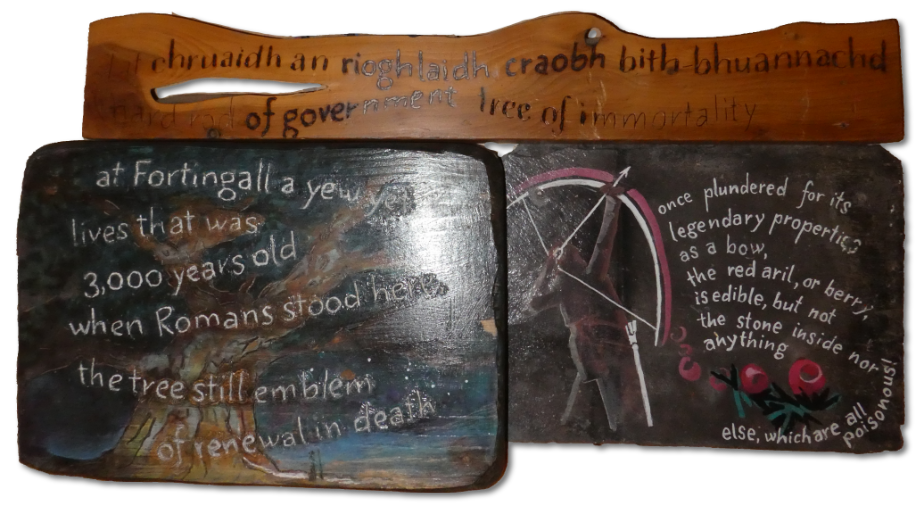 chruaidh an rioghlaidh craobh bith-bhuannachd
hard rod of government tree of immortality
at Fortingall a yew yet
lives that was
3,000 years old
when Romans stood here,
the tree still emblem
of renewal in death
once plundered for its
legendary properties
as a bow,
the red aril, or berry,
is edible, but not
the stone inside nor
anything
else, which are all
poisonous!